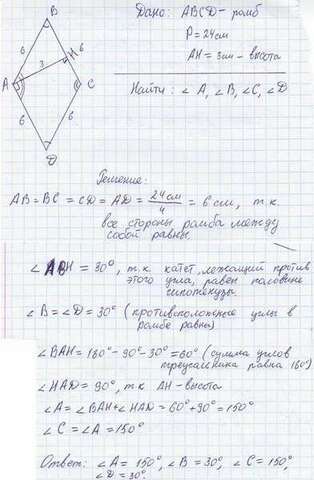 Дано: ABCD - ромб
P = 24 см
AH = 3 см - высота
Найти: ∠A, ∠B, ∠C, ∠D
B
6
6
H
A
3
C
6
6
D
Решение:
AB = BC = CD = AD = 24 см / 4 = 6 см, т.к.
все стороны ромба между
собой равны.
∠ABH = 30°, т.к. катет, лежащий против
этого угла, равен половине
гипотенузы.
∠B = ∠D = 30° (противоположные углы в
ромбе равны)
∠BAH = 180° - 90° - 30° = 60° (сумма углов
треугольника равна 180°)
∠HAD = 90°, т.к. AH - высота
∠A = ∠BAH + ∠HAD = 60° + 90° = 150°
∠C = ∠A = 150°
Ответ: ∠A = 150°, ∠B = 30°, ∠C = 150°,
∠D = 30°.